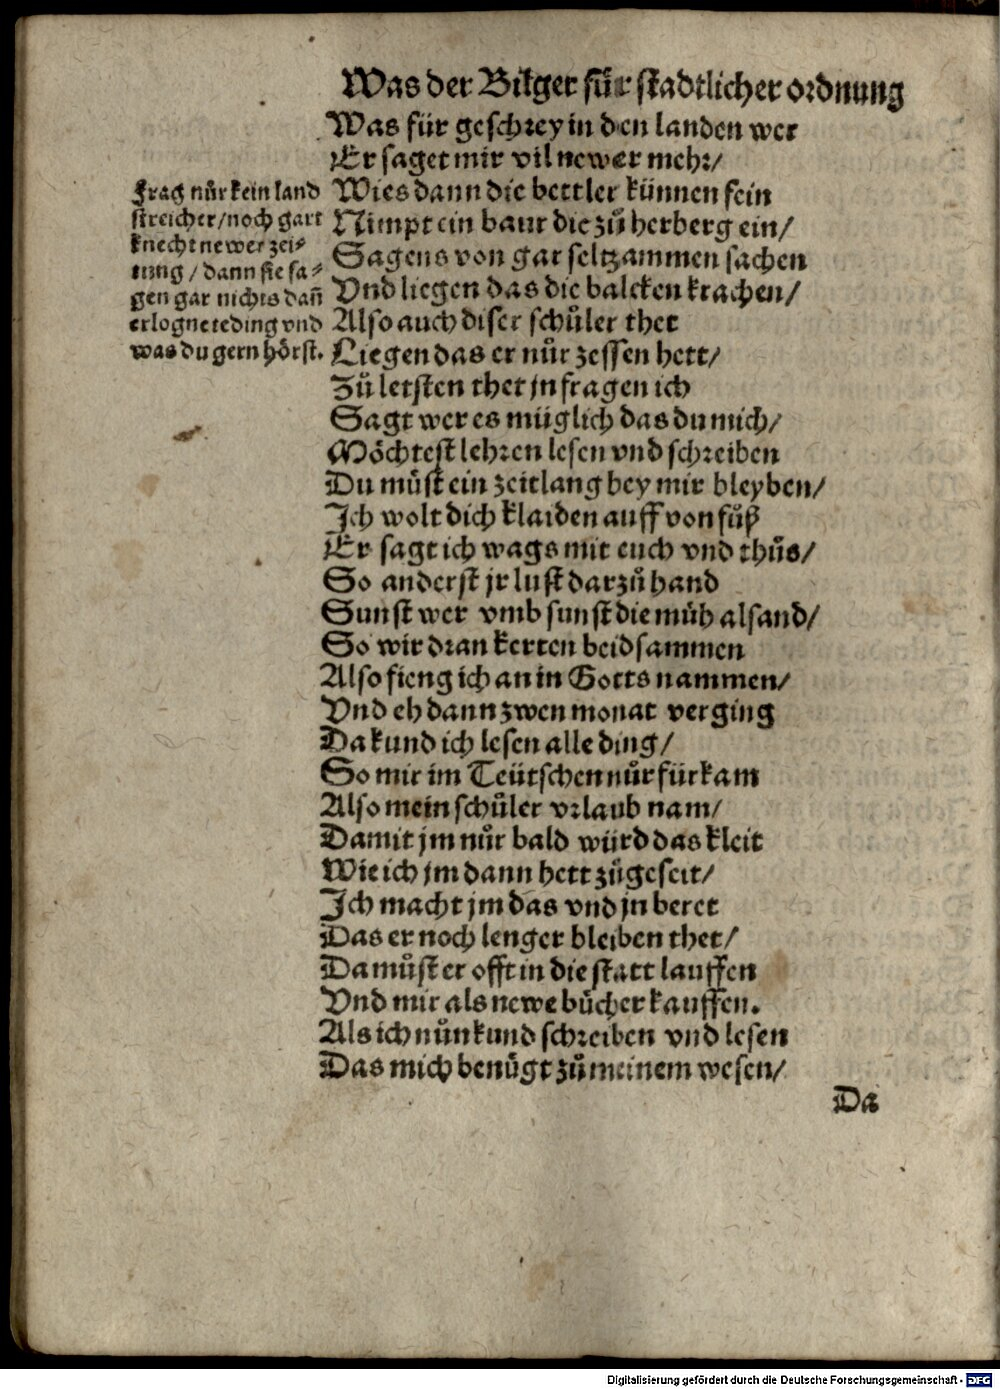 Was der Bilger für stadtlicher ordnung
Was für geschrey in den landen wer
Er saget mir vil newer mehr/
Wies dann die bettler künnen sein
Nimpt ein baur die zů herberg ein/
Sagens von gar seltzammen sachen
Vnd liegen das die balcken krachen/
Also auch diser schůler thet
Liegen das er nůr zessen hett/
Zů letsten thet jn fragen ich
Sagt wer es müglich das du mich/
Möchtest lehren lesen vnd schreiben
Du můst ein zeitlang bey mir bleyben/
Ich wolt dich klaiden auff von fůß
Er sagt ich wags mit euch vnd thůs/
So anderst jr lust darzů hand
Sunst wer vmb sunst die müh alsand/
So wir dran kerten beid sammen
Also fieng ich an in Gotts nammen/
Vnd eh dann zwen monat verging
Da kund ich lesen alle ding/
So mir im Teütschen nůr fürkam
Also mein schůler vrlaub nam/
Damit jm nůr bald würd das kleit
Wie ich jm dann hett zůgeseit/
Ich macht jm das vnd jn beret
Das er noch lenger bleiben thet/
Da můst er offt in die statt lauffen
Vnd mir als newe bücher kauffen.
Als ich nůn kund schreiben vnd lesen
Das mich benügt zů meinem wesen/
Da
Frag nůr kein land
streicher/noch gart
knecht newer zei⸗
tung/dann sie sa⸗
gen gar nichts dañ
erlognete ding vnd
was du gern hörst.
Digitalisierung gefördert durch die Deutsche Forschungsgemeinschaft - DFG